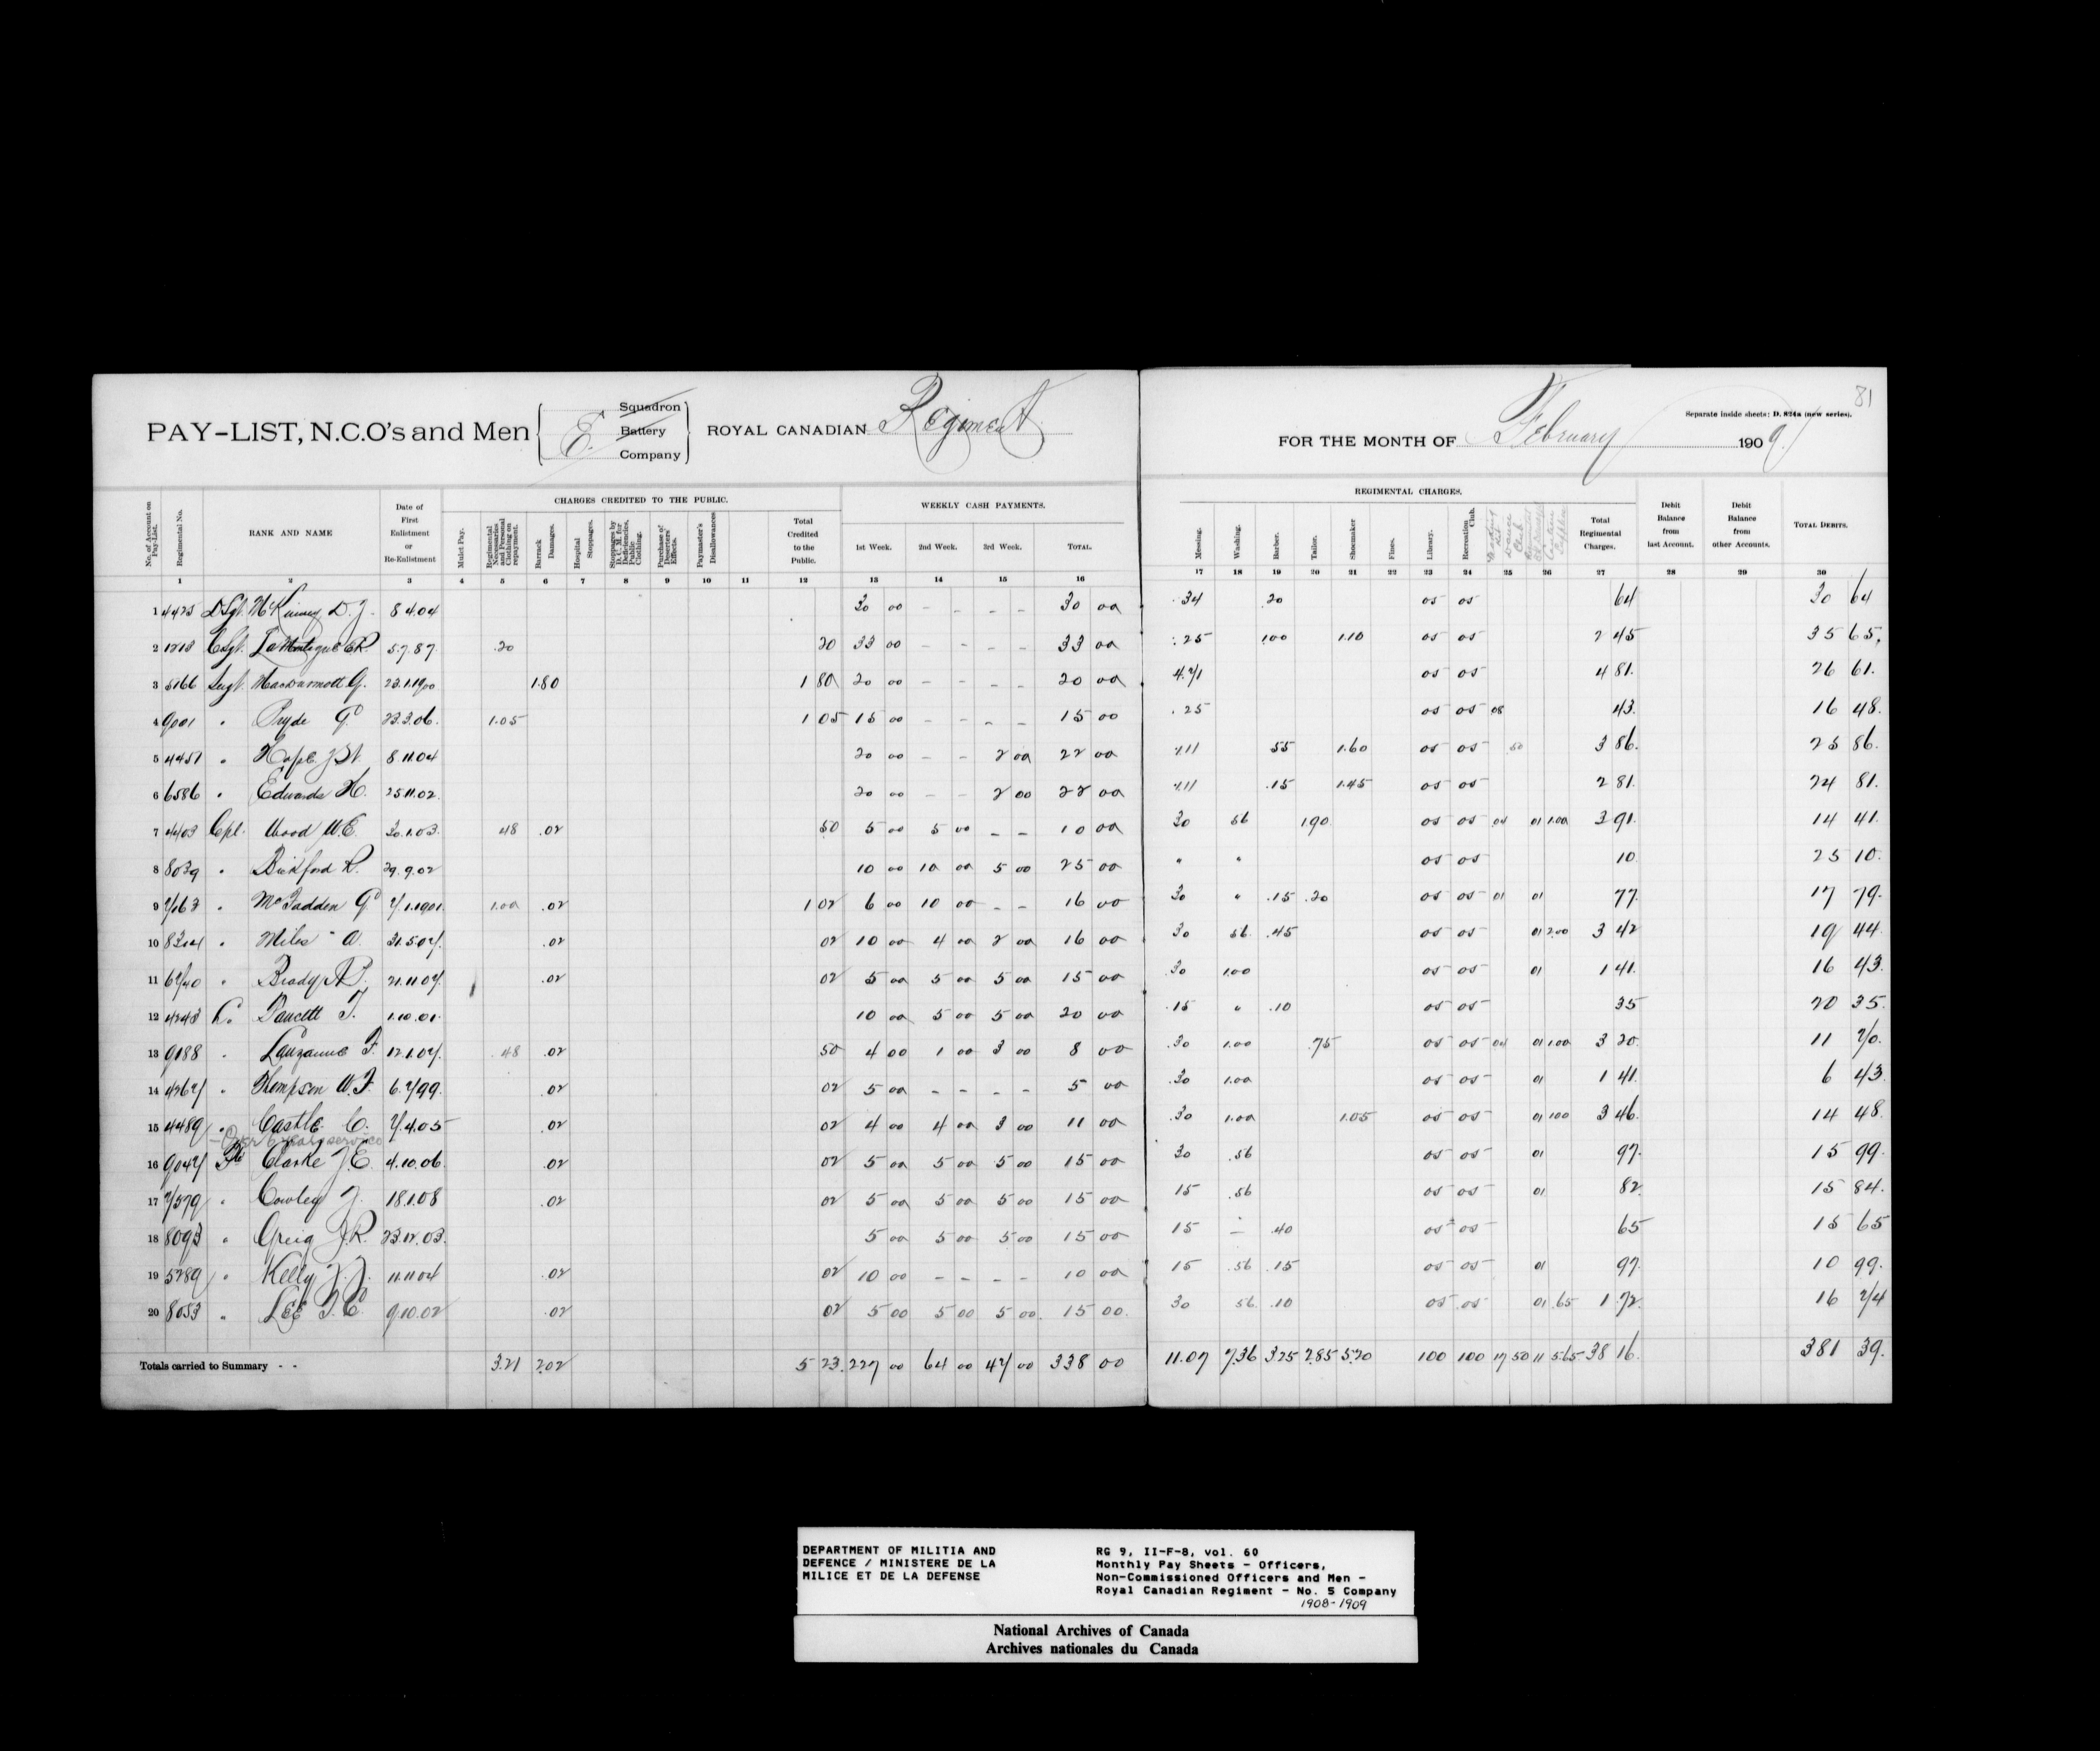 81
PAY-LIST, N.C.O's and Men E. Squadron Battery Company ROYAL CANADIAN Regiment
Separate inside sheets: D. 824a (new series).
FOR THE MONTH OF February 1909
No. of Account on Pay-List. Regimental No. RANK AND NAME Date of First Enlistment or Re-Enlistment
CHARGES CREDITED TO THE PUBLIC.
Mulct Pay. Regimental Necessaries and Personal Clothing on repayment. Barrack Damages. Hospital Stoppages. Stoppages by D. C. M. for Deficiencies, Public Clothing. Purchase of Deserters' Effects. Paymaster's Disallowances Total Credited to the Public.
WEEKLY CASH PAYMENTS.
1st Week. 2nd Week. 3rd Week. TOTAL.
REGIMENTAL CHARGES.
Messing. Washing. Barber. Tailor. Shoemaker Fines. Library. Recreation Club. Total Regimental Charges.
Debit Balance from last Account. Debit Balance from other Accounts. TOTAL DEBITS.
1 2 3 4 5 6 7 8 9 10 11 12 13 14 15 16 17 18 19 20 21 22 23 24 25 26 27 28 29 30
1 4425 McKinney D. J. 8.4.04 30 00 - - - - 30 00 .34 .20 05 05 64 30 64
2 1213 CSgt. LaMontagne 5.7.87 .20 20 33 00 - - - - 33 00 .25 1.00 1.10 05 05 2 45 35 65
3 5166 Sergt. MacDermott G. 23.1.1900 1.80 1 80 20 00 - - - - 20 00 4.71 05 05 4 81 26 61
4 9001 " Pryde G. 23.3.06 1.05 1 05 15 00 - - - - 15 00 .25 05 05 08 43 16 48
5 4451 " 8.11.04 20 00 - - 2 00 22 00 1.11 55 1.60 05 05 50 3 86 25 86
6 6586 " Edwards H. 25.11.02 20 00 - - 2 00 22 00 1.11 .15 1.45 05 05 2 81 24 81
7 4403 Cpl. Wood W.E. 30.1.03 48 .02 50 5 00 5 00 - - 10 00 30 56 1.90 05 05 04 01 1.00 3 91 14 41
8 8039 " Bickford R. 29.9.02 10 00 10 00 5 00 25 00 " " 05 05 10 25 10
9 7163 " McFadden G. 7.1.1901 1.00 .02 1 02 6 00 10 00 - - 16 00 30 " .15 .20 05 05 01 01 77 17 79
10 8304 " Miles A. 31.5.07 .02 02 10 00 4 00 2 00 16 00 30 56 .45 05 05 01 2.00 3 42 19 44
11 6740 " Brady 21.11.07 .02 02 5 00 5 00 5 00 15 00 30 1.00 05 05 01 1 41 16 43
12 4243 Faucett T. 1.10.01 10 00 5 00 5 00 20 00 .15 " .10 05 05 35 20 35
13 9188 " Lauzanne F. 12.1.07 .48 .02 50 4 00 1 00 3 00 8 00 .30 1.00 .75 05 05 04 01 1.00 3 20 11 70
14 4267 " Thompson W.F. 6.7.99 .02 02 5 00 - - - - 5 00 .30 1.00 05 05 01 1 41 6 43
15 4489 " Castle C. 7.4.05 .02 02 4 00 4 00 3 00 11 00 .30 1.00 1.05 05 05 01 1 00 3 46 14 48
- Over 6 years service
16 9047 Pte Clarke J.E. 4.10.06 .02 02 5 00 5 00 5 00 15 00 30 .56 05 05 01 97 15 99
17 7579 " Cowley J. 18.1.08 .02 02 5 00 5 00 5 00 15 00 15 .56 05 05 01 82 15 84
18 8093 " Greig J.R. 23.12.03 5 00 5 00 5 00 15 00 15 - .40 05 05 65 15 65
19 5289 " Kelly J.J. 11.11.04 .02 02 10 00 - - - - 10 00 15 .56 .15 05 05 01 97 10 99
20 8053 " LEE T.C. 9.10.02 .02 02 5 00 5 00 5 00 15 00 30 56 .10 05 05 01 .65 1 72 16 74
Totals carried to Summary - - 3.21 2.02 5 23 227 00 64 00 47 00 338 00 11.07 7.36 3.25 2.85 5.20 1 00 1 00 17 50 11 5.65 38 16 381 39
DEPARTMENT OF MILITIA AND
DEFENCE / MINISTERE DE LA
MILICE ET DE LA DEFENSE
RG 9, II-F-8, vol. 60
Monthly Pay Sheets - Officers,
Non-Commissioned Officers and Men -
Royal Canadian Regiment - No. 5 Company
1908-1909
National Archives of Canada
Archives nationales du Canada